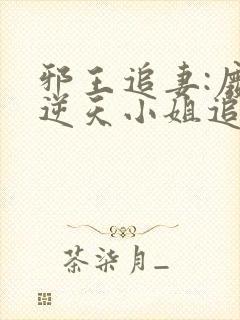 邪王追妻:
逆天小姐追
茶柒月_